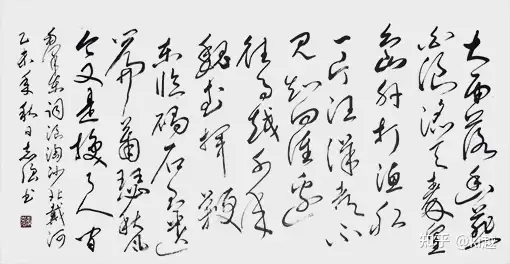 大雨落幽燕
白浪滔天秦皇
岛外打渔船
一片汪洋都不
见知向谁边
往事越千年
魏武挥鞭
东临碣石有遗
篇萧瑟秋风
今又是换了人间
毛泽东词浪淘沙北戴河
乙未年秋日志强书
知乎